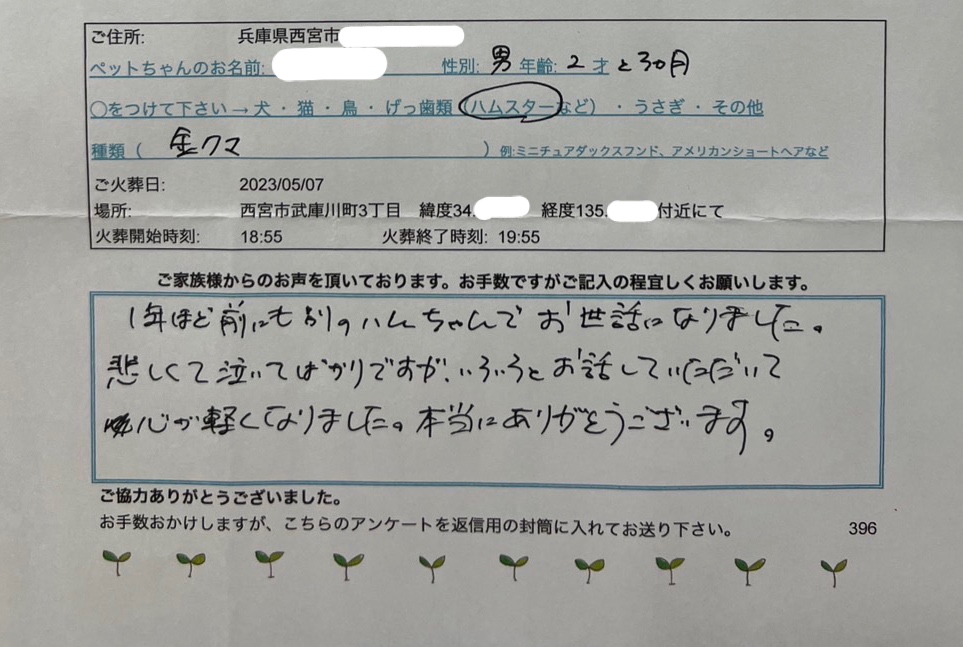 ご住所: 兵庫県西宮市
ペットちゃんのお名前: 性別: 男 年齢: 2 才 と3ヵ月
○をつけて下さい → 犬 ・ 猫 ・ 鳥 ・ げっ歯類 (ハムスターなど) ・ うさぎ ・ その他
種類 ( 金クマ ) 例:ミニチュアダックスフンド、アメリカンショートヘアなど
ご火葬日: 2023/05/07
場所: 西宮市武庫川町3丁目 緯度34. 経度135. 付近にて
火葬開始時刻: 18:55 火葬終了時刻: 19:55
ご家族様からのお声を頂いております。お手数ですがご記入の程宜しくお願いします。
1年ほど前にも別のハムちゃんでお世話になりました。
悲しくて泣いてばかりですが、いろいろとお話していただいて
心が軽くなりました。本当にありがとうございます。
ご協力ありがとうございました。
お手数おかけしますが、こちらのアンケートを返信用の封筒に入れてお送り下さい。 396